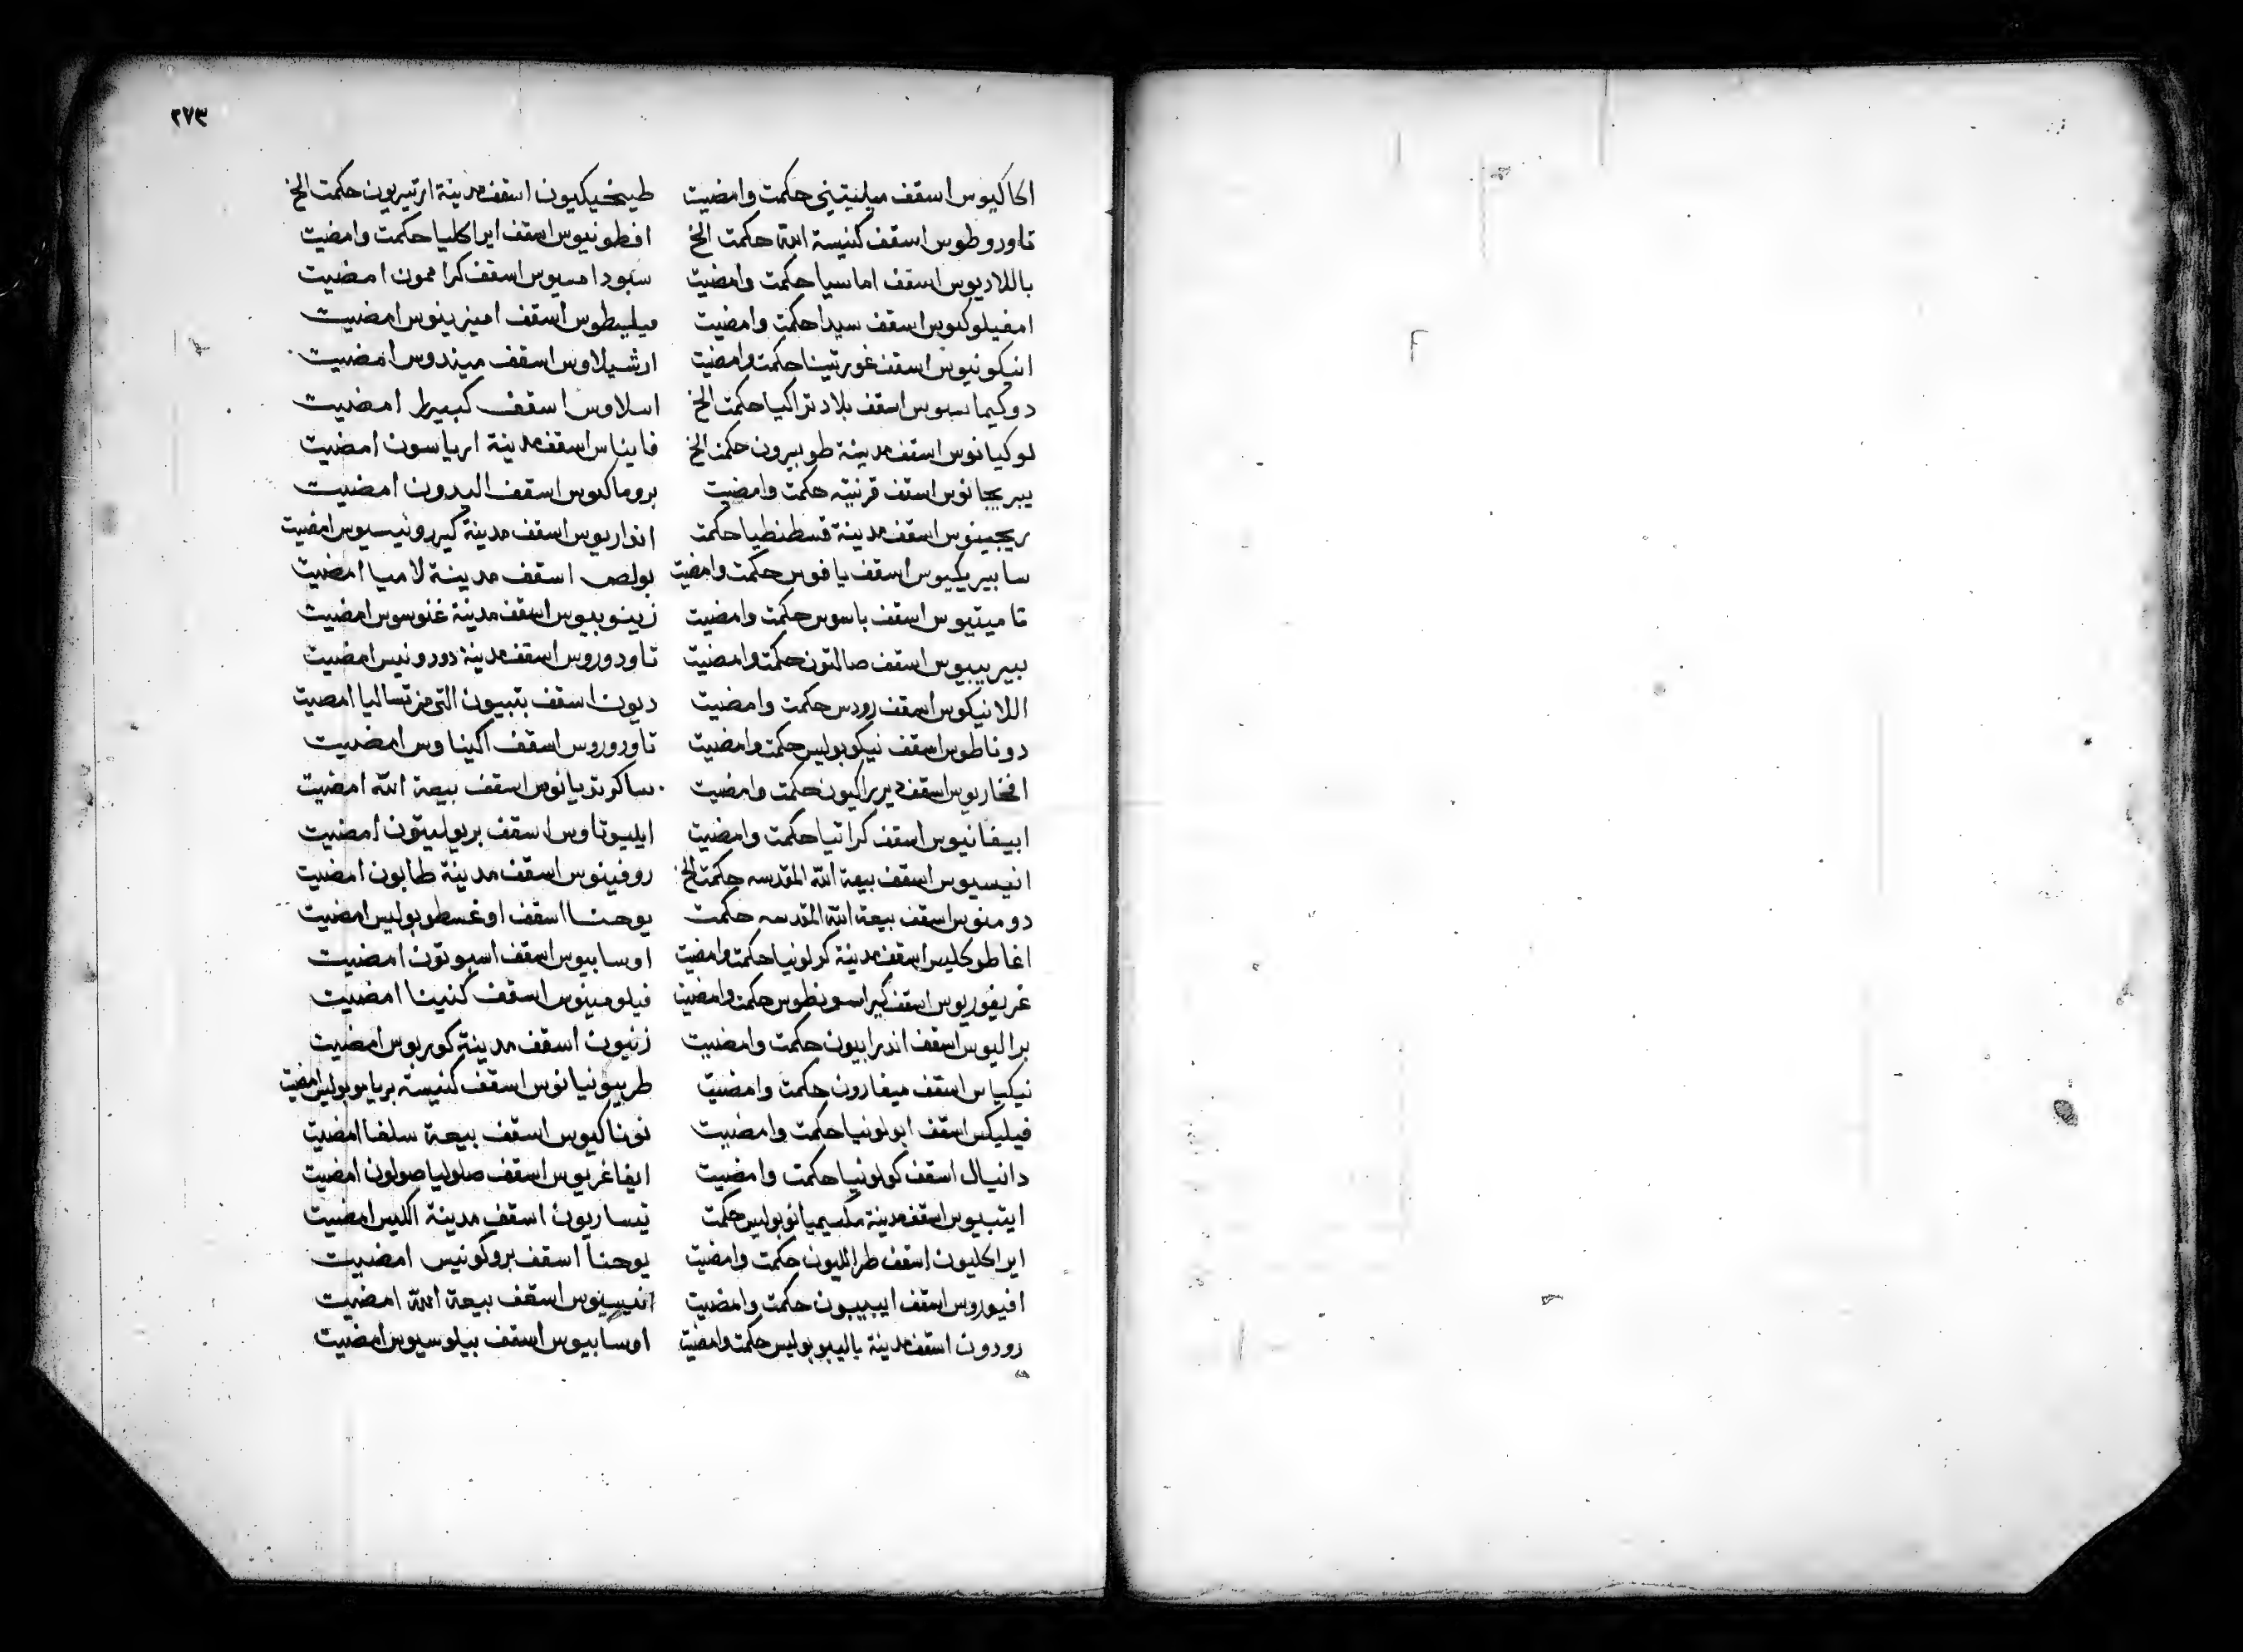 ٢٧٣
اكاكيوس اسقف ميليتيني حكمت وامضيت
تاوروطوس اسقف كنيسة الله حكمت الخ
باللاديوس اسقف اماسيا حكمت وامضيت
امفيلوكيوس اسقف سيدا حكمت وامضيت
انيكونيوس اسقف غورتينا حكمت وامضيت
دوكيماسيوس اسقف بلاد تراكيا حكمت الخ
لوكيانوس اسقف مدينة طوبيرون حكمت الخ
بيريجانوس اسقف قرنتيه حكمت وامضيت
ريجينوس اسقف مدينة قسطنطيا حكمت
سابيريكيوس اسقف يافوس حكمت وامضيت
تاميتيوس اسقف باسوس حكمت وامضيت
بيريبيوس اسقف صالتون حكمت وامضيت
اللانيكوس اسقف رودس حكمت وامضيت
دوناطوس اسقف نيكوبوليس حكمت وامضيت
افخاريوس اسقف ديريراكيون حكمت وامضيت
ابيفانيوس اسقف كراتيا حكمت وامضيت
انيسيوس اسقف بيعة الله المقدسه حكمت الخ
دومنوس اسقف بيعة الله المقدسه حكمت
اغاطوكليس اسقف مدينة كرلونيا حكمت وامضيت
غريغوريوس اسقف كيراسونطوس حكمت وامضيت
براليوس اسقف اندرابيون حكمت وامضيت
نيكياس اسقف ميغارون حكمت وامضيت
فيليكس اسقف ابولونيا حكمت وامضيت
دانيال اسقف كولونيا حكمت وامضيت
ايتيبوس اسقف مدينة مكسيميانوبوليس حكمت
ايراكليون اسقف طراللليون حكمت وامضيت
افيوروس اسقف ايبيبون حكمت وامضيت
رودون اسقف مدينة باليبوبوليس حكمت وامضيت
طيخيكيون اسقف مدينة ارتيريون حكمت الخ
افطونيوس اسقف ايراكليا حكمت وامضيت
سبودامسيوس اسقف كراممون امضيت
فيليطوس اسقف اميزينوس امضيت
ارشيلاوس اسقف ميندوس امضيت
اسلاوس اسقف كبيرط امضيت
فايناس اسقف مدينة ارياسون امضيت
بروماكيوس اسقف اليدون امضيت
انداريوس اسقف مدينة كيررونيسيوس امضيت
بولص اسقف مدينة لاميا امضيت
زينوبيوس اسقف مدينة غنوسوس امضيت
تاودوروس اسقف مدينة دودونيس امضيت
ديون اسقف بتبيون التي من تساليا امضيت
تاوروروس اسقف اكيناوس امضيت
ساكرتديانوس اسقف بيعة الله امضيت
ايليوتاوس اسقف بريوليتون امضيت
روفينوس اسقف مدينة طابون امضيت
يوحنا اسقف اوغسطوبوليس امضيت
اوسابيوس اسقف اسبوتون امضيت
فيلومينوس اسقف كنينا امضيت
زنيون اسقف مدينة كوريوس امضيت
طربيونيانوس اسقف كنيسة بريابوبوليس امضيت
نوناكيوس اسقف بيعة سلغا امضيت
ايفاغريوس اسقف صلوليا صولون امضيت
تيساريون اسقف مدينة اكليس امضيت
يوحنا اسقف بروكونيس امضيت
انيسيوس اسقف بيعة الله امضيت
اوسابيوس اسقف بيلوسيوس امضيت